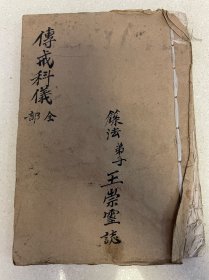 傳戒科儀
全部
籙法弟子王崇靈誌